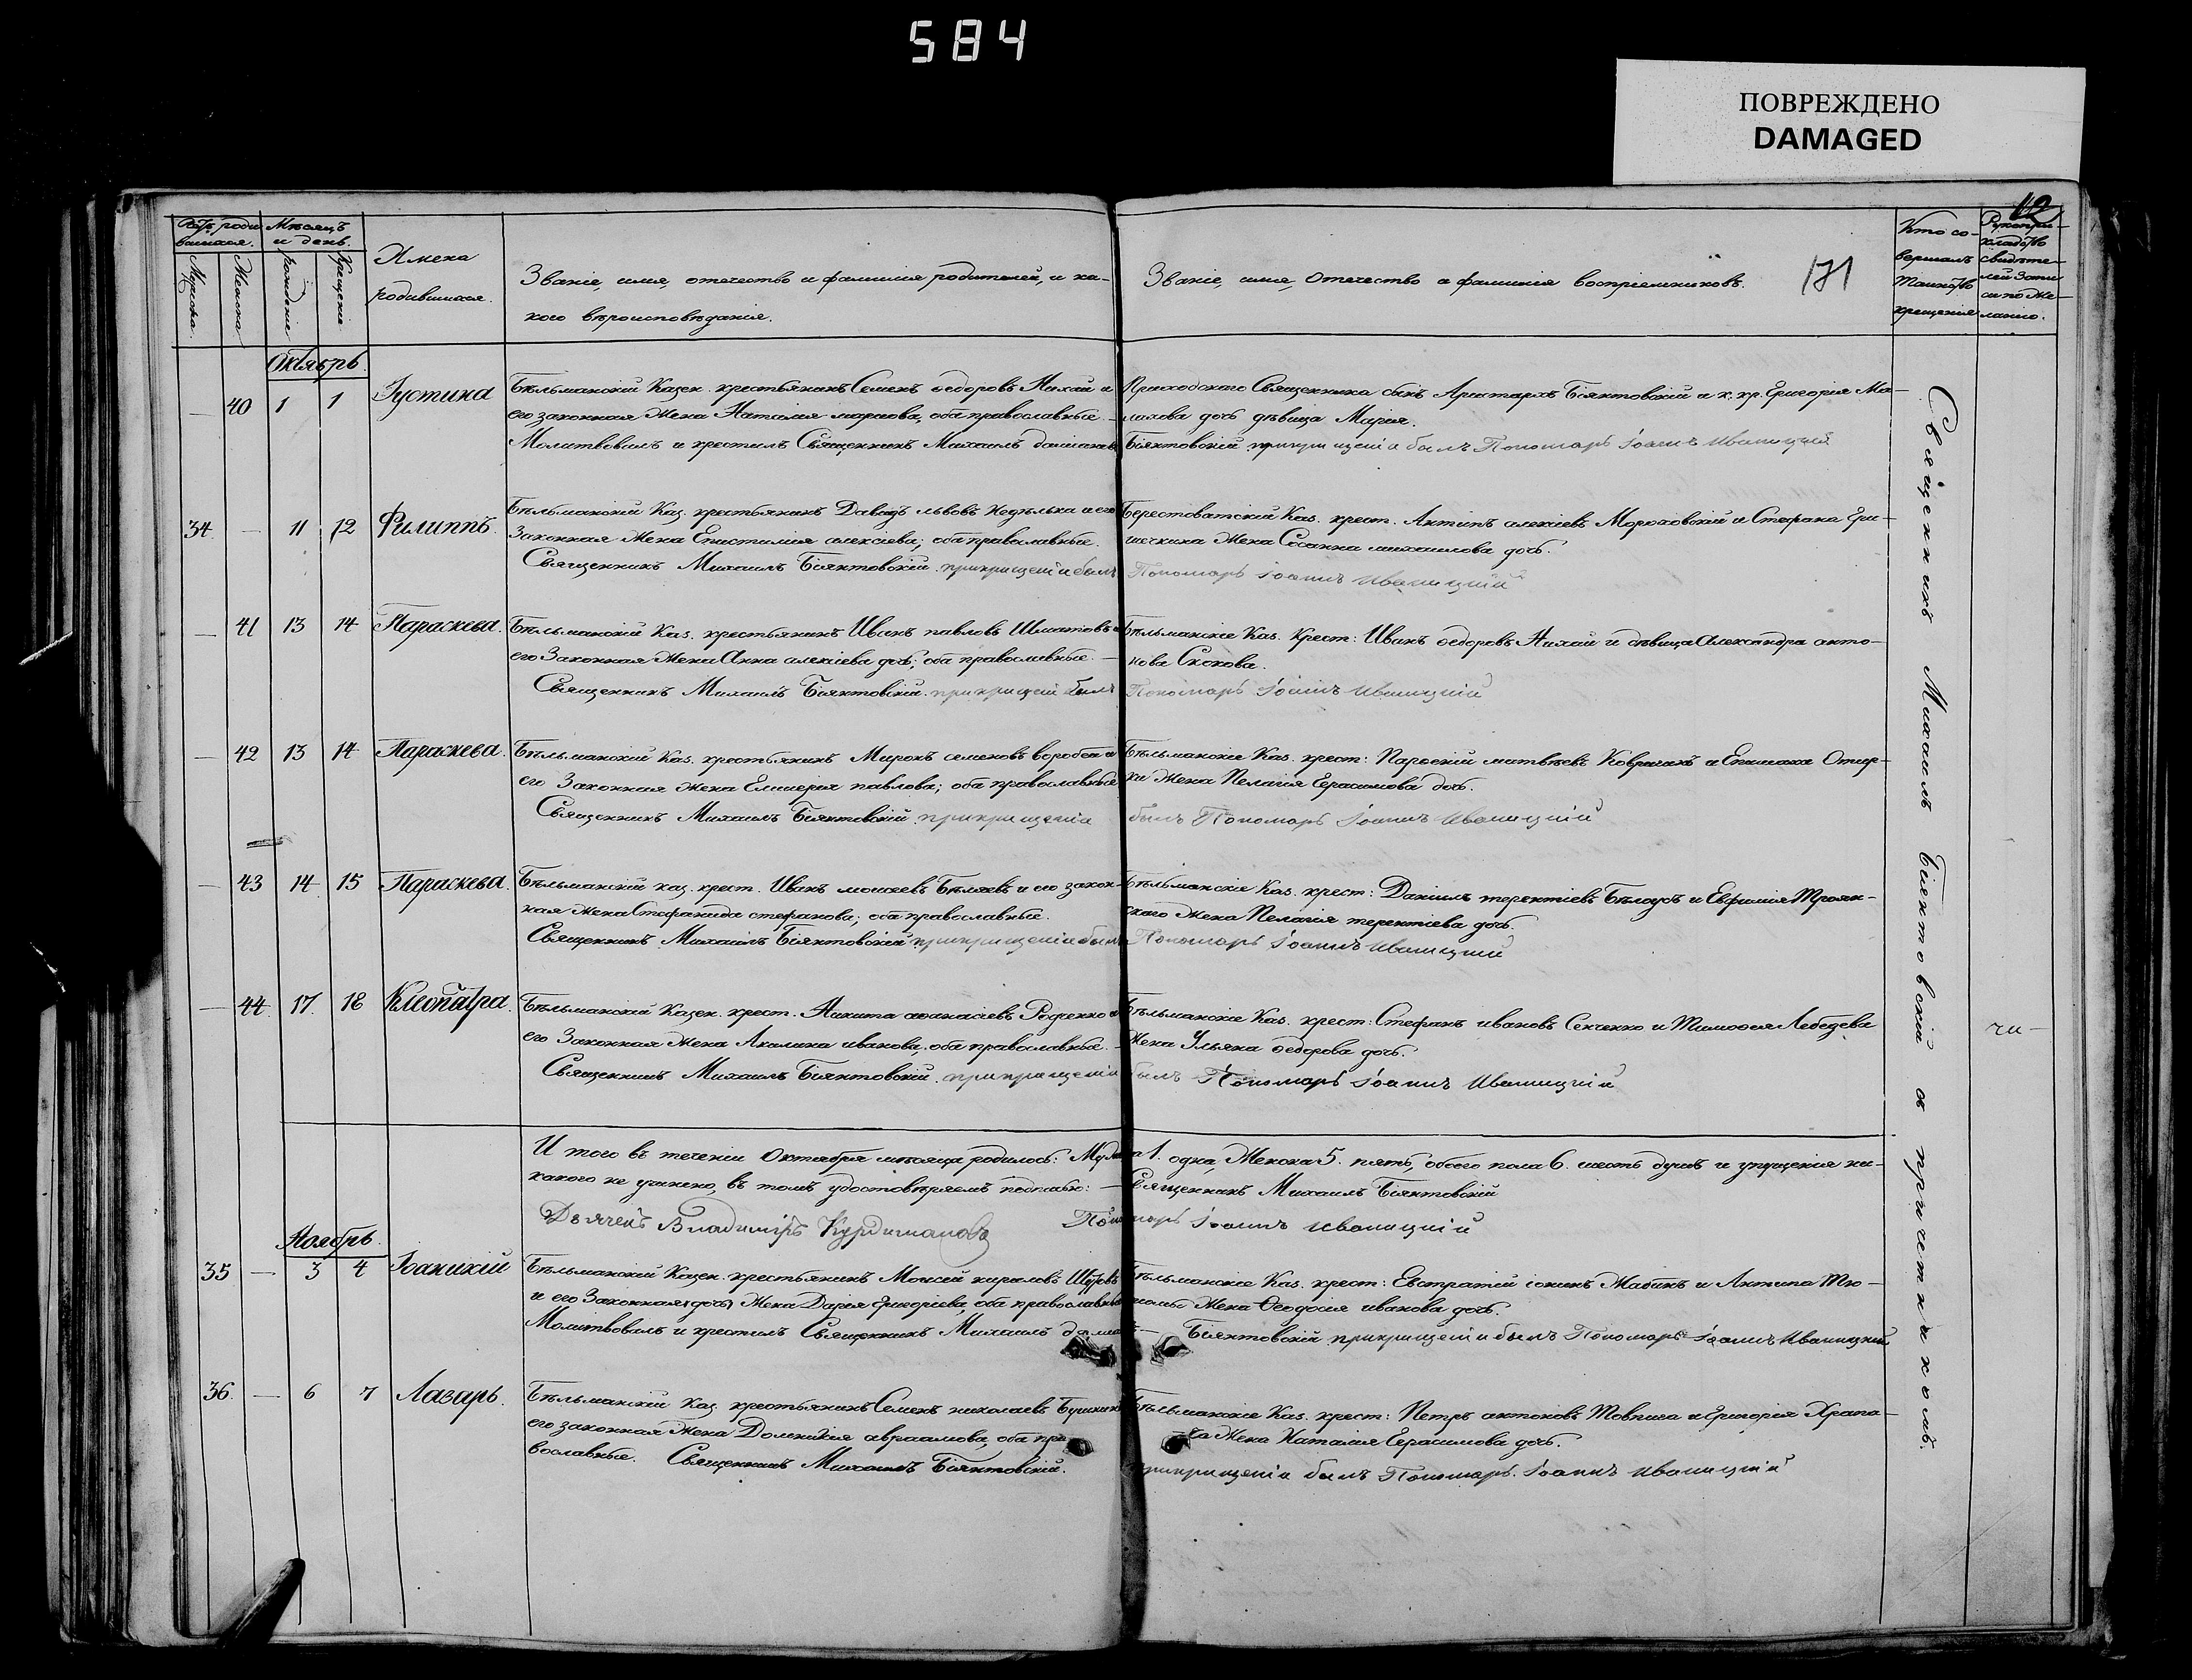 584
ПОВРЕЖДЕНО
DAMAGED
12
Мѣсяцъ
и день.
Мужска.
Женска.
рожденіе
крещеніе
Имена
родившихся.
Званіе, имя, отечество и фамилія родителей, и ка-
кого вѣроисповѣданія.
Званіе, имя, Отечество и фамилія воспріемниковъ.
171
Кто со-
вершалъ
таинство
крещенія
Рукопри-
кладство
свидѣте-
лей запи
си по же-
ланію.
Октябрь.
— 40 1 1 Іустина
Бѣльманскій Казен. крестьянинъ Семенъ ѳедоровъ Нихай и
его законная Жена Наталія маркова, оба православные. —
Молитвовалъ и крестилъ Священникъ Михаилъ
Приходскаго Священника сынъ Аристархъ Біянтовскій и к. кр. Григорія Ма-
лахова дочь дѣвица Марія.
Біянтовскій прикрищеніи былъ Пономарь Іоаннъ Иваницкій
34 — 11 12 Филиппъ.
Бѣльманскій Каз. крестьянинъ Давидъ львовъ Недѣлька и его
Законная Жена Епистимія алексіева; оба православные.
Священникъ Михаилъ Біянтовскій. прикрищеніи былъ
Берестоватскій Каз. крест. Антипъ алексіевъ Мороховскій и Стефана Гри-
шечкина Жена Сосанна михаилова дочь.
Пономарь Іоаннъ Иваницкій
— 41 13 14 Параскева.
Бѣльманскій Каз. крестьянинъ Иванъ павловъ Шматовъ и
его Законная Жена Анна алексіева дочь; оба православные. —
Священникъ Михаилъ Біянтовскій. прикрищеніи былъ
Бѣльманскіе Каз. Крест: Иванъ ѳедоровъ Нихай и дѣвица Александра анто-
нова Скокова.
Пономарь Іоаннъ Иваницкій
— 42 13 14 Параскева.
Бѣльманскій Каз. крестьянинъ Миронъ семеновъ воробей и
его Законная Жена Гликерія павлова; оба православные
Священникъ Михаилъ Біянтовскій. прикрищеніи
Бѣльманскіе Каз. крест: Парѳеній матвѣевъ Ковриганъ и
ки Жена Пелагія Герасимова дочь.
былъ Пономарь Іоаннъ Иваницкій
— 43 14 15 Параскева.
Бѣльманскій каз. крест. Иванъ моисеевъ Бѣляевъ и его закон-
ная Жена Стефанида стефанова; оба православные.
Священникъ Михаилъ Біянтовскій прикрищеніи былъ
Бѣльманскіе Каз. крест: Даніилъ терентіевъ Бѣлоусъ и Евфимія Троян-
скаго Жена Пелагія терентіева дочь.
Пономарь Іоаннъ Иваницкій
— 44 17. 18 Клеопатра.
Бѣльманскій Казен. крест. Никита аѳанасіевъ Роденко и
его Законная Жена Акилина иванова, оба православные. —
Священникъ Михаилъ Біянтовскій. прикрищеніи
Бѣльманскіе Каз. крест: Стефанъ ивановъ Сенченко и Тимоѳея Лебедева
Жена Ульяна ѳедорова дочь.
былъ Пономарь Іоаннъ Иваницкій
И того въ теченіи Октября мѣсяца родилось: Муж
какого не учинено, въ томъ удостовѣряемъ подписью: —
Дьячекъ Владиміръ Курдимановъ
1. одна, Женска 5. пять, обоего пола 6. шесть душъ и упущенія ни-
Священникъ Михаилъ Біянтовскій
Пономарь Іоаннъ Иваницкій
Ноябрь.
35 — 3 4 Іоаникій
Бѣльманскій Казен. крестьянинъ Моисей кириловъ
и его Законная Жена Дарія Григоріева, оба православные
Молитвовалъ и крестилъ Священникъ Михаилъ
Бѣльманскіе Каз. крест: Евстратій іонинъ Жабинъ и Антипа Тю-
Жена Ѳеодосія иванова дочь.
Біянтовскій прикрищеніи былъ Пономарь Іоаннъ Иваницкій
36. — 6 7 Лазарь.
Бѣльманскій Каз. крестьянинъ Семенъ николаевъ
его законная Жена Домникія авраамова, оба пра-
вославные. Священникъ Михаилъ Біянтовскій.
Бѣльманскіе Каз. крест: Петръ антоновъ Товпига и Григорія Храпа-
Жена Наталія Герасимова дочь.
прикрищеніи былъ Пономарь Іоаннъ Иваницкій
Священникъ Михаилъ Біянтовскій съ причетникомъ.